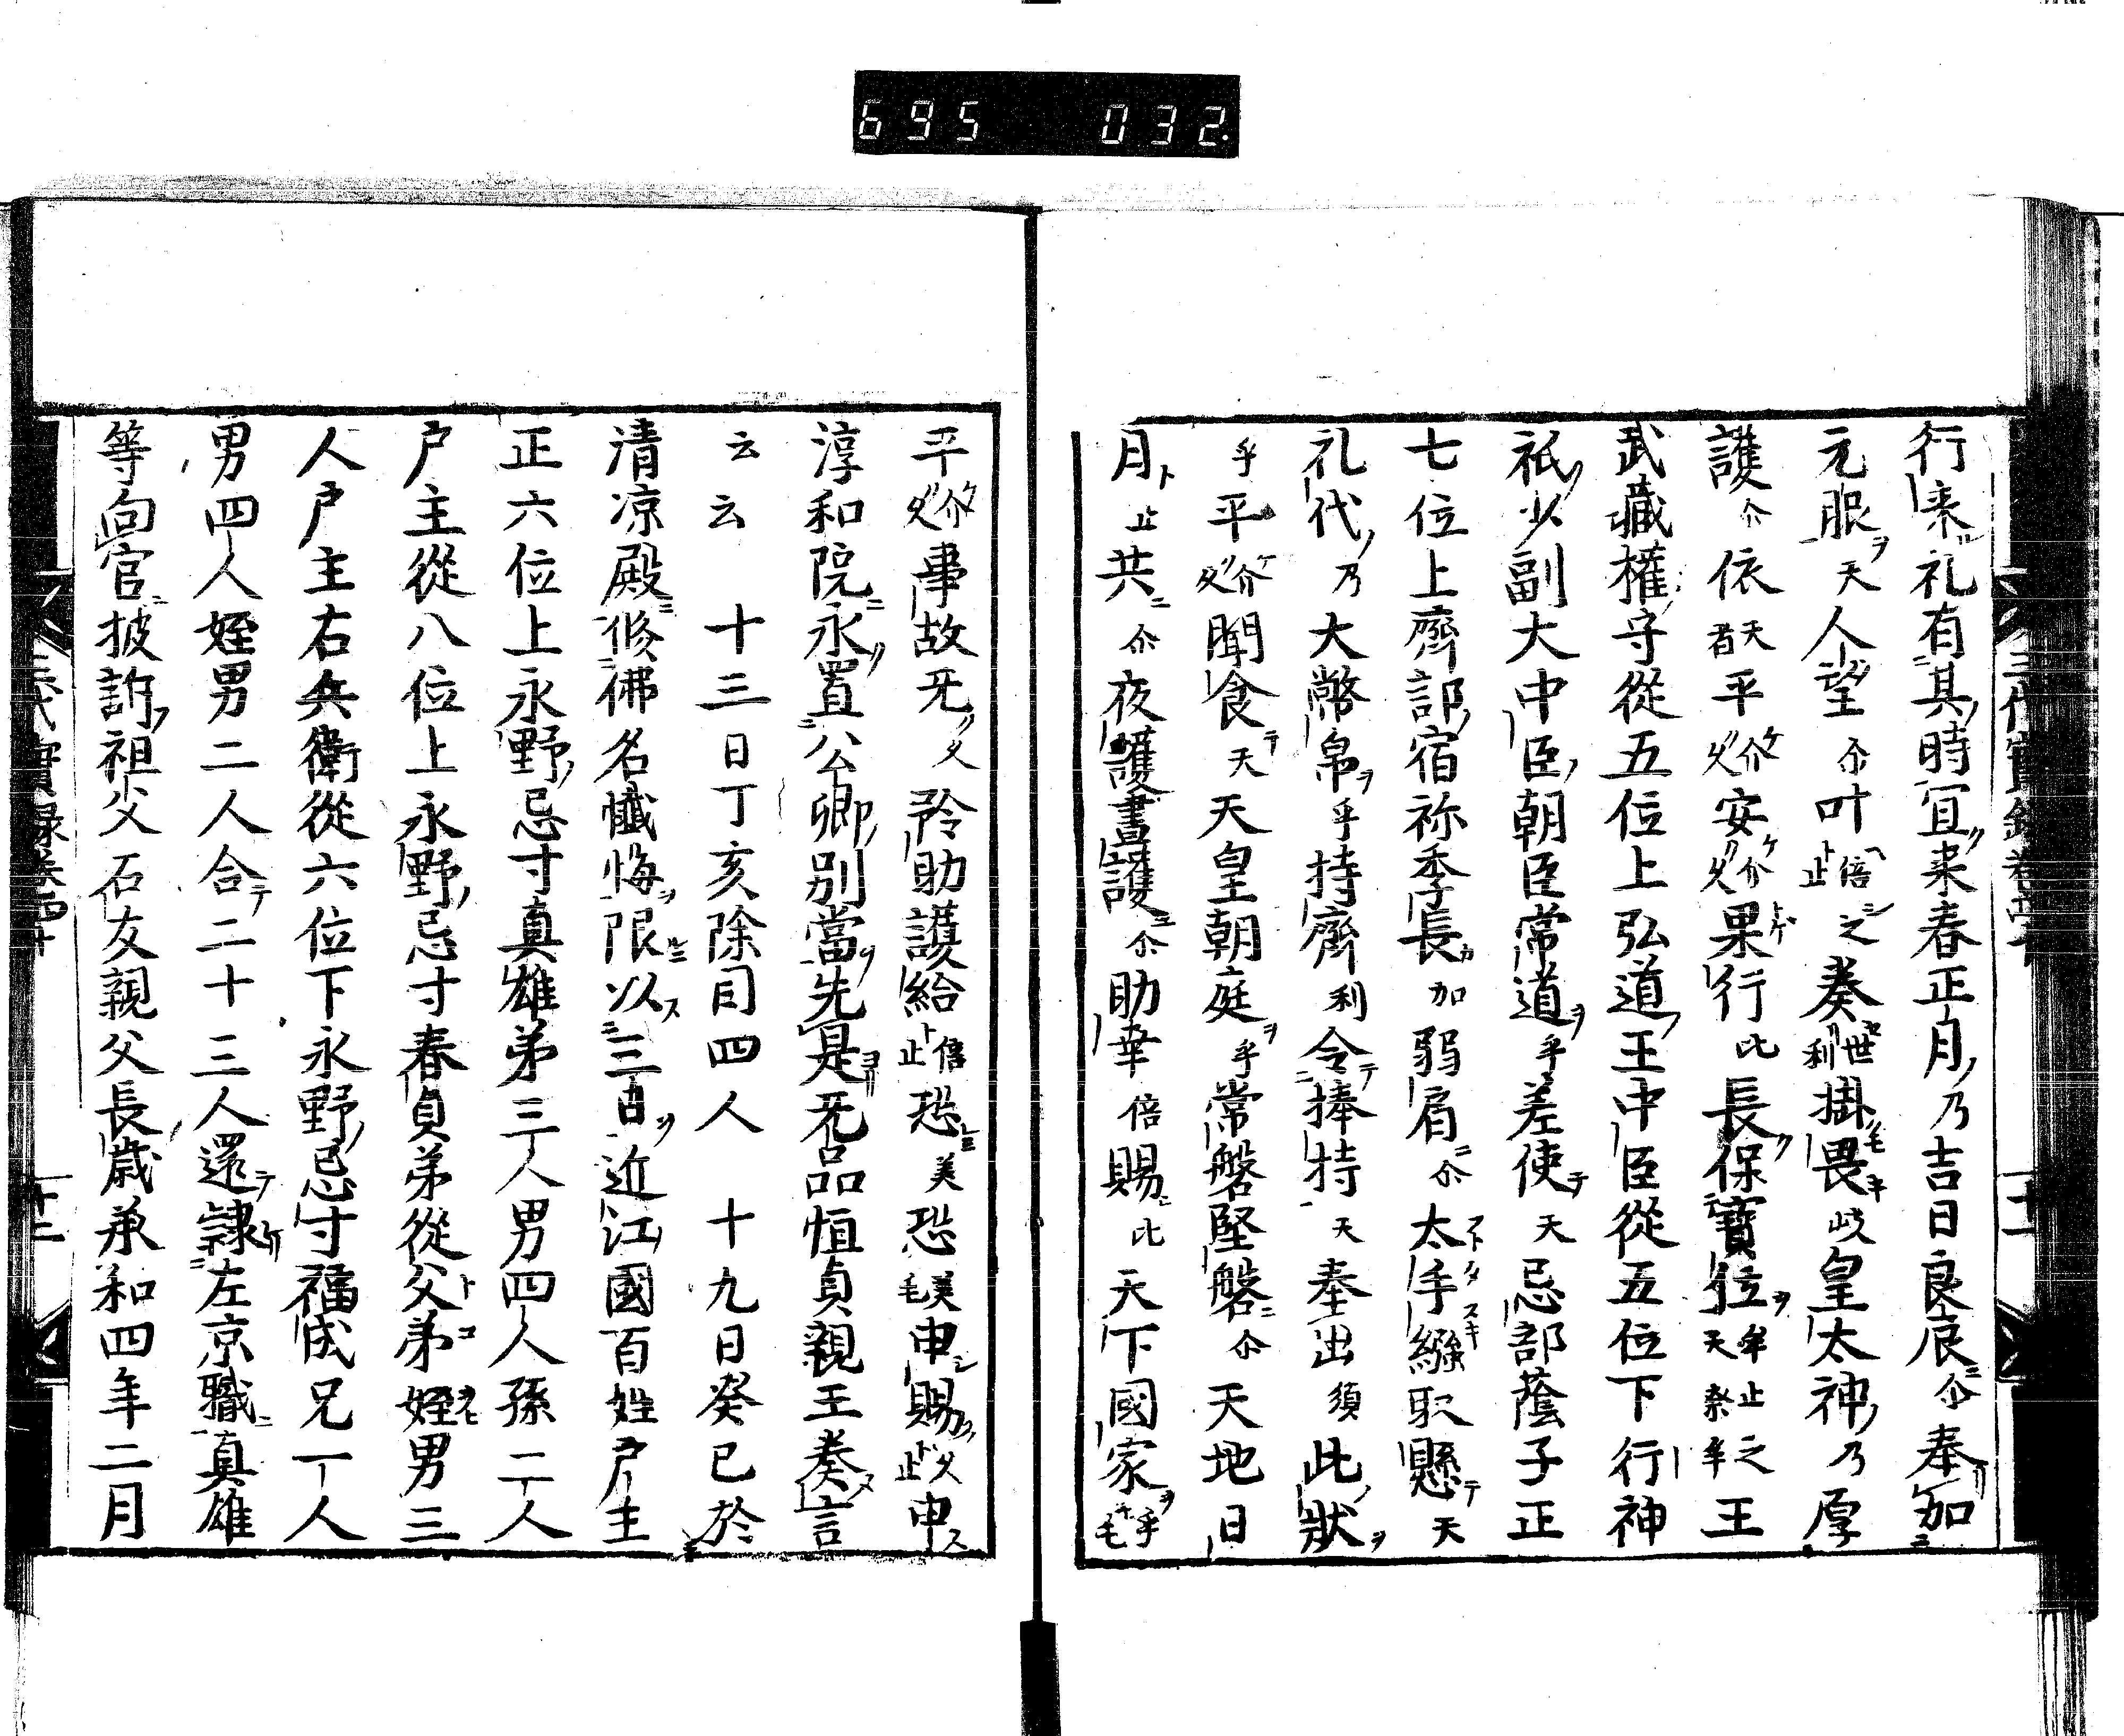 695 032.
三代實録卷四十
十一
行来礼有其時冝来春正月乃吉日良辰尒奉加
元服天人望尒叶倍止之奏世利掛畏岐皇太神乃厚
護尒依天者平介久安介久果行比長保寳位天牟止之王
武藏權守從五位上弘道王中臣從五位下行神
祇少副大中臣朝臣常道乎差使天忌部蔭子正
七位上齊部宿祢季長加弱肩尒太手繦取懸天
礼代乃大幣帛乎持齊利令捧持天奉出須此狀
乎平介久聞食天天皇朝庭乎常磐堅磐尒天地日
月止共尒夜護晝護尒助幸倍賜比天下國家乎毛
平介久事故无久矜助護給倍止恐美恐美毛申賜久止申
淳和院永置公卿別當先是无品恒貞親王奏言
云云 十三日丁亥除目四人 十九日癸巳於
清凉殿修佛名懺悔限以三日近江國百姓户主
正六位上永野忌寸真雄弟三人男四人孫二人
户主從八位上永野忌寸春貞弟從父弟姪男三
人户主右兵衛從六位下永野忌寸福成兄一人
男四人姪男二人合二十三人還隷左京職真雄
等向官披訴祖父石友親父長歳承和四年二月
三代實録卷四十
十二